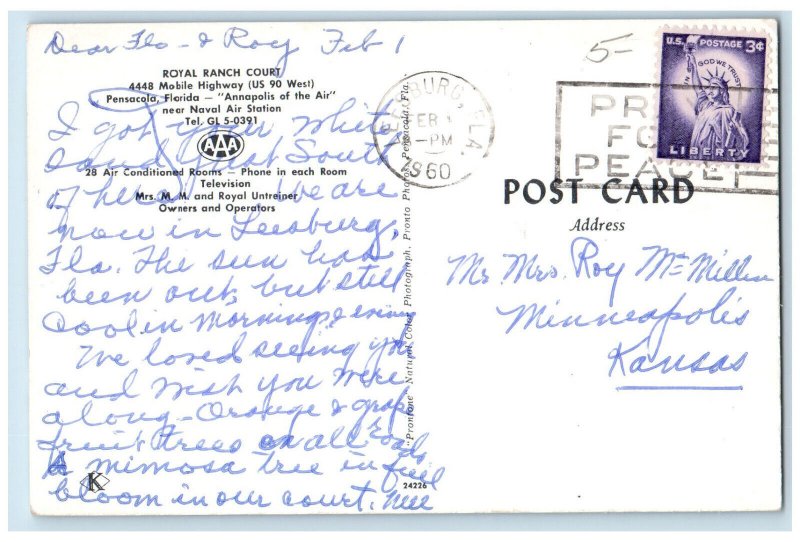 Dear Flo & Roy Feb 1
ROYAL RANCH COURT
4448 Mobile Highway (US 90 West)
Pensacola, Florida — "Annapolis of the Air"
near Naval Air Station
Tel. GL 5-0391
AAA
28 Air Conditioned Rooms — Phone in each Room
Television
Mrs. M. M. and Royal Untreiner
Owners and Operators
I got your white
sand just South
of here. We are
now in Leesburg,
Fla. The sun has
been out, but still
Cool in Mornings & evening
We loved seeing you
and wish you were
along - Orange & grape
fruit trees on all roads
A mimosa tree in full
bloom in our court.
K
24226
"Prontone" Natural Color Photograph, Pronto Photos, Pensacola, Fla.
5-
LEESBURG, FLA.
FEB 1
-PM
1960
PRAY
FOR
PEACE
U.S. POSTAGE 3¢
IN GOD WE TRUST
LIBERTY
POST CARD
Address
Mr Mrs. Roy McMillin
Minneapolis
Kansas